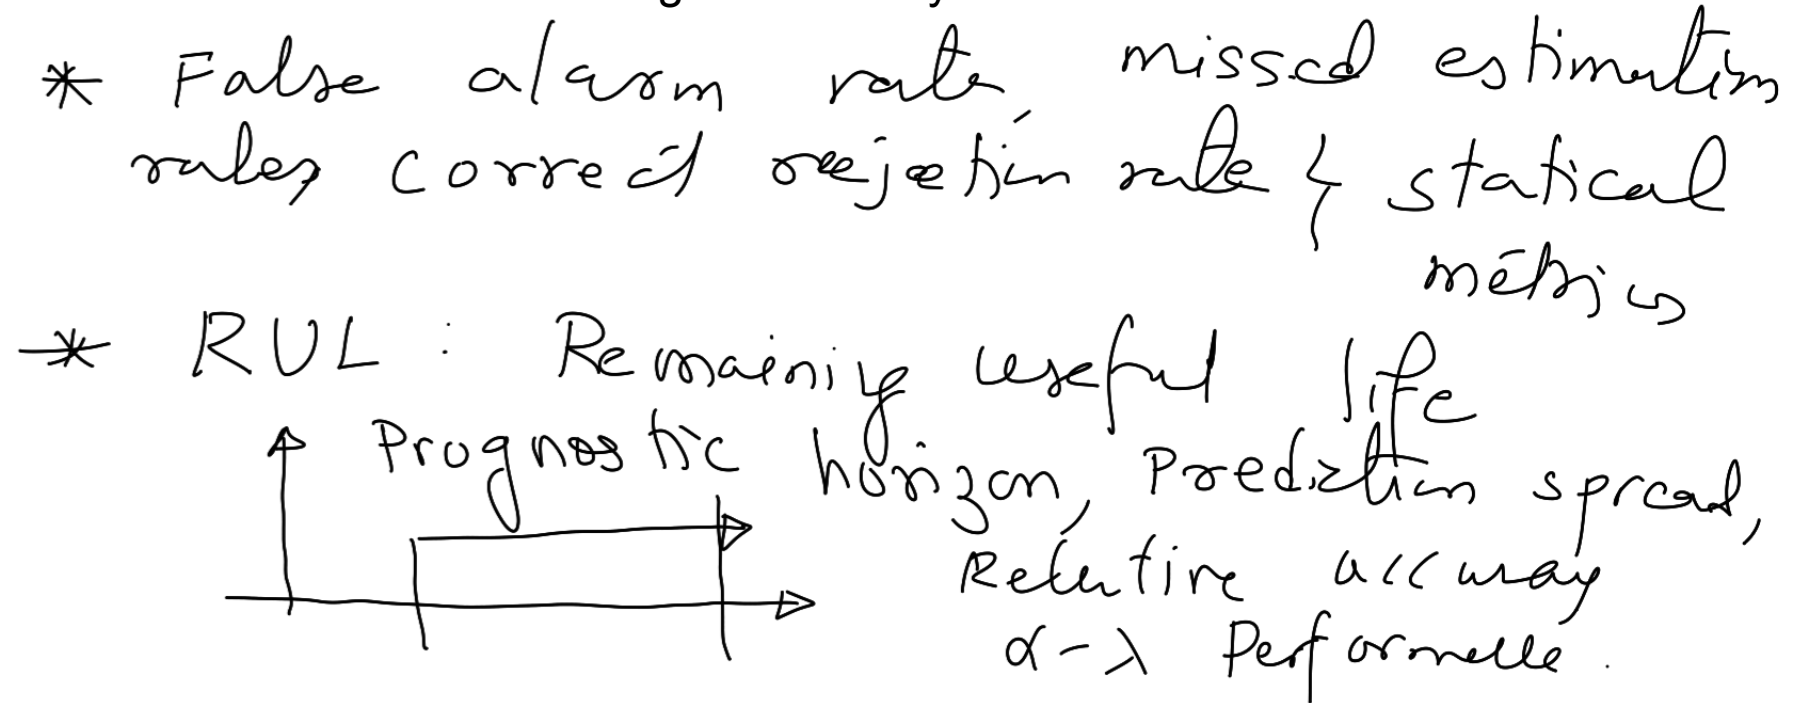 * False alarm rate, missed estimation
rates, correct rejection rate & statical
metrics
* RUL : Remaining useful life
Prognostic horizon, Prediction spread,
Relative accuracy
α-λ Performance.